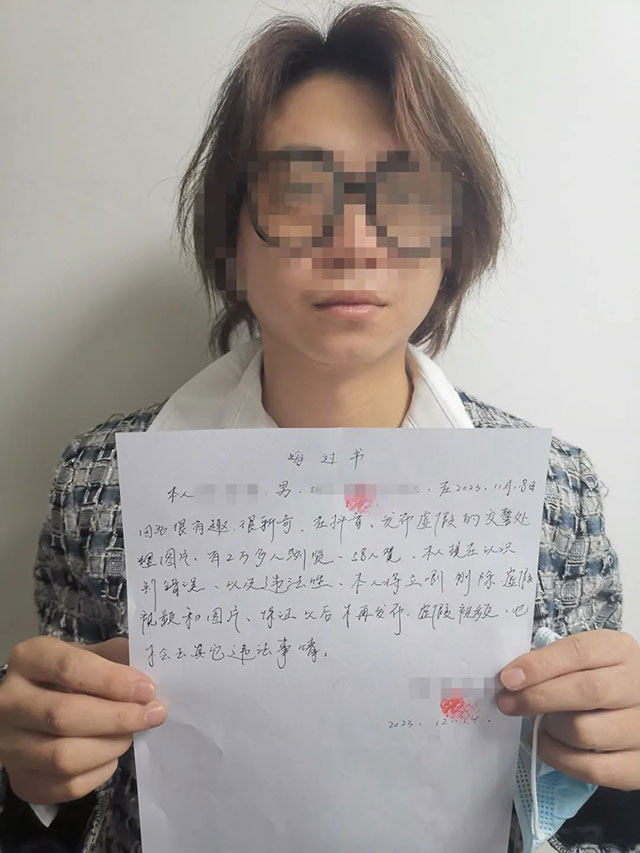 悔过书
本人 男, 在2023.11月18日
因为很有趣、很新奇、在抖音、发布虚假的交警处
理图片、有2万多人浏览、58人赞、本人现在认识
到错误、以及违法性、本人将立刻删除虚假
视频和图片、保证以后不再发布虚假视频、也
不会去其它违法事情。
2023. 12. 24.